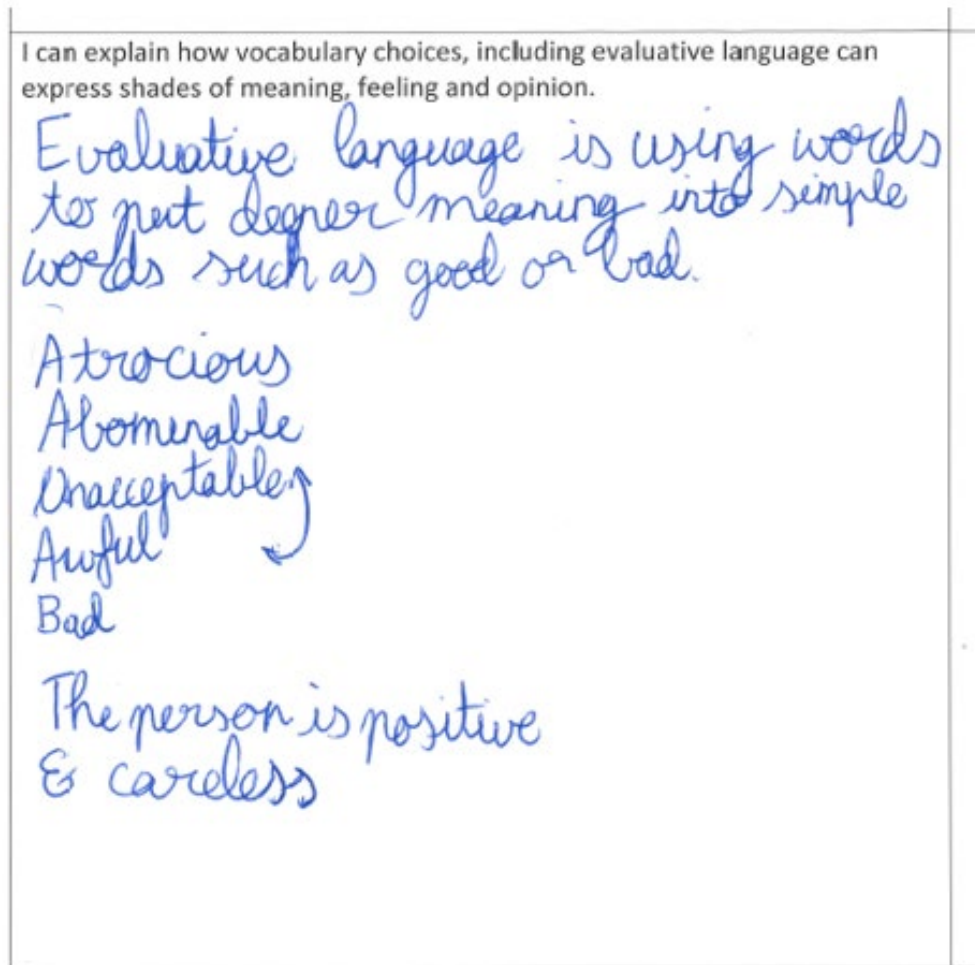 I can explain how vocabulary choices, including evaluative language can
express shades of meaning, feeling and opinion.
Evaluative language is using words
to put deeper meaning into simple
words such as good or bad.
Atrocious
Abomenable
Unacceptable
Awful
Bad
The person is positive
& careless